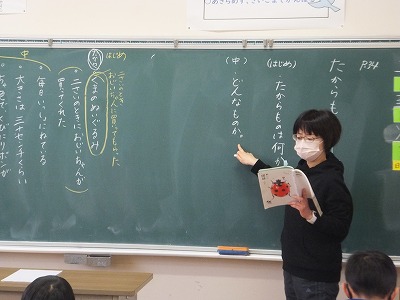 P34
たからも
(はじめ)・たからものは何か
(中)・どんなものか。
はじめ
二さいのとき
おじいちゃんに買ってもらった
くまのぬいぐるみ
二さいのときにおじいちゃんが
買ってくれた
中
毎日いっしょにねてる
大きさは三十センチくらい
ちゃ色でくびにリボンが